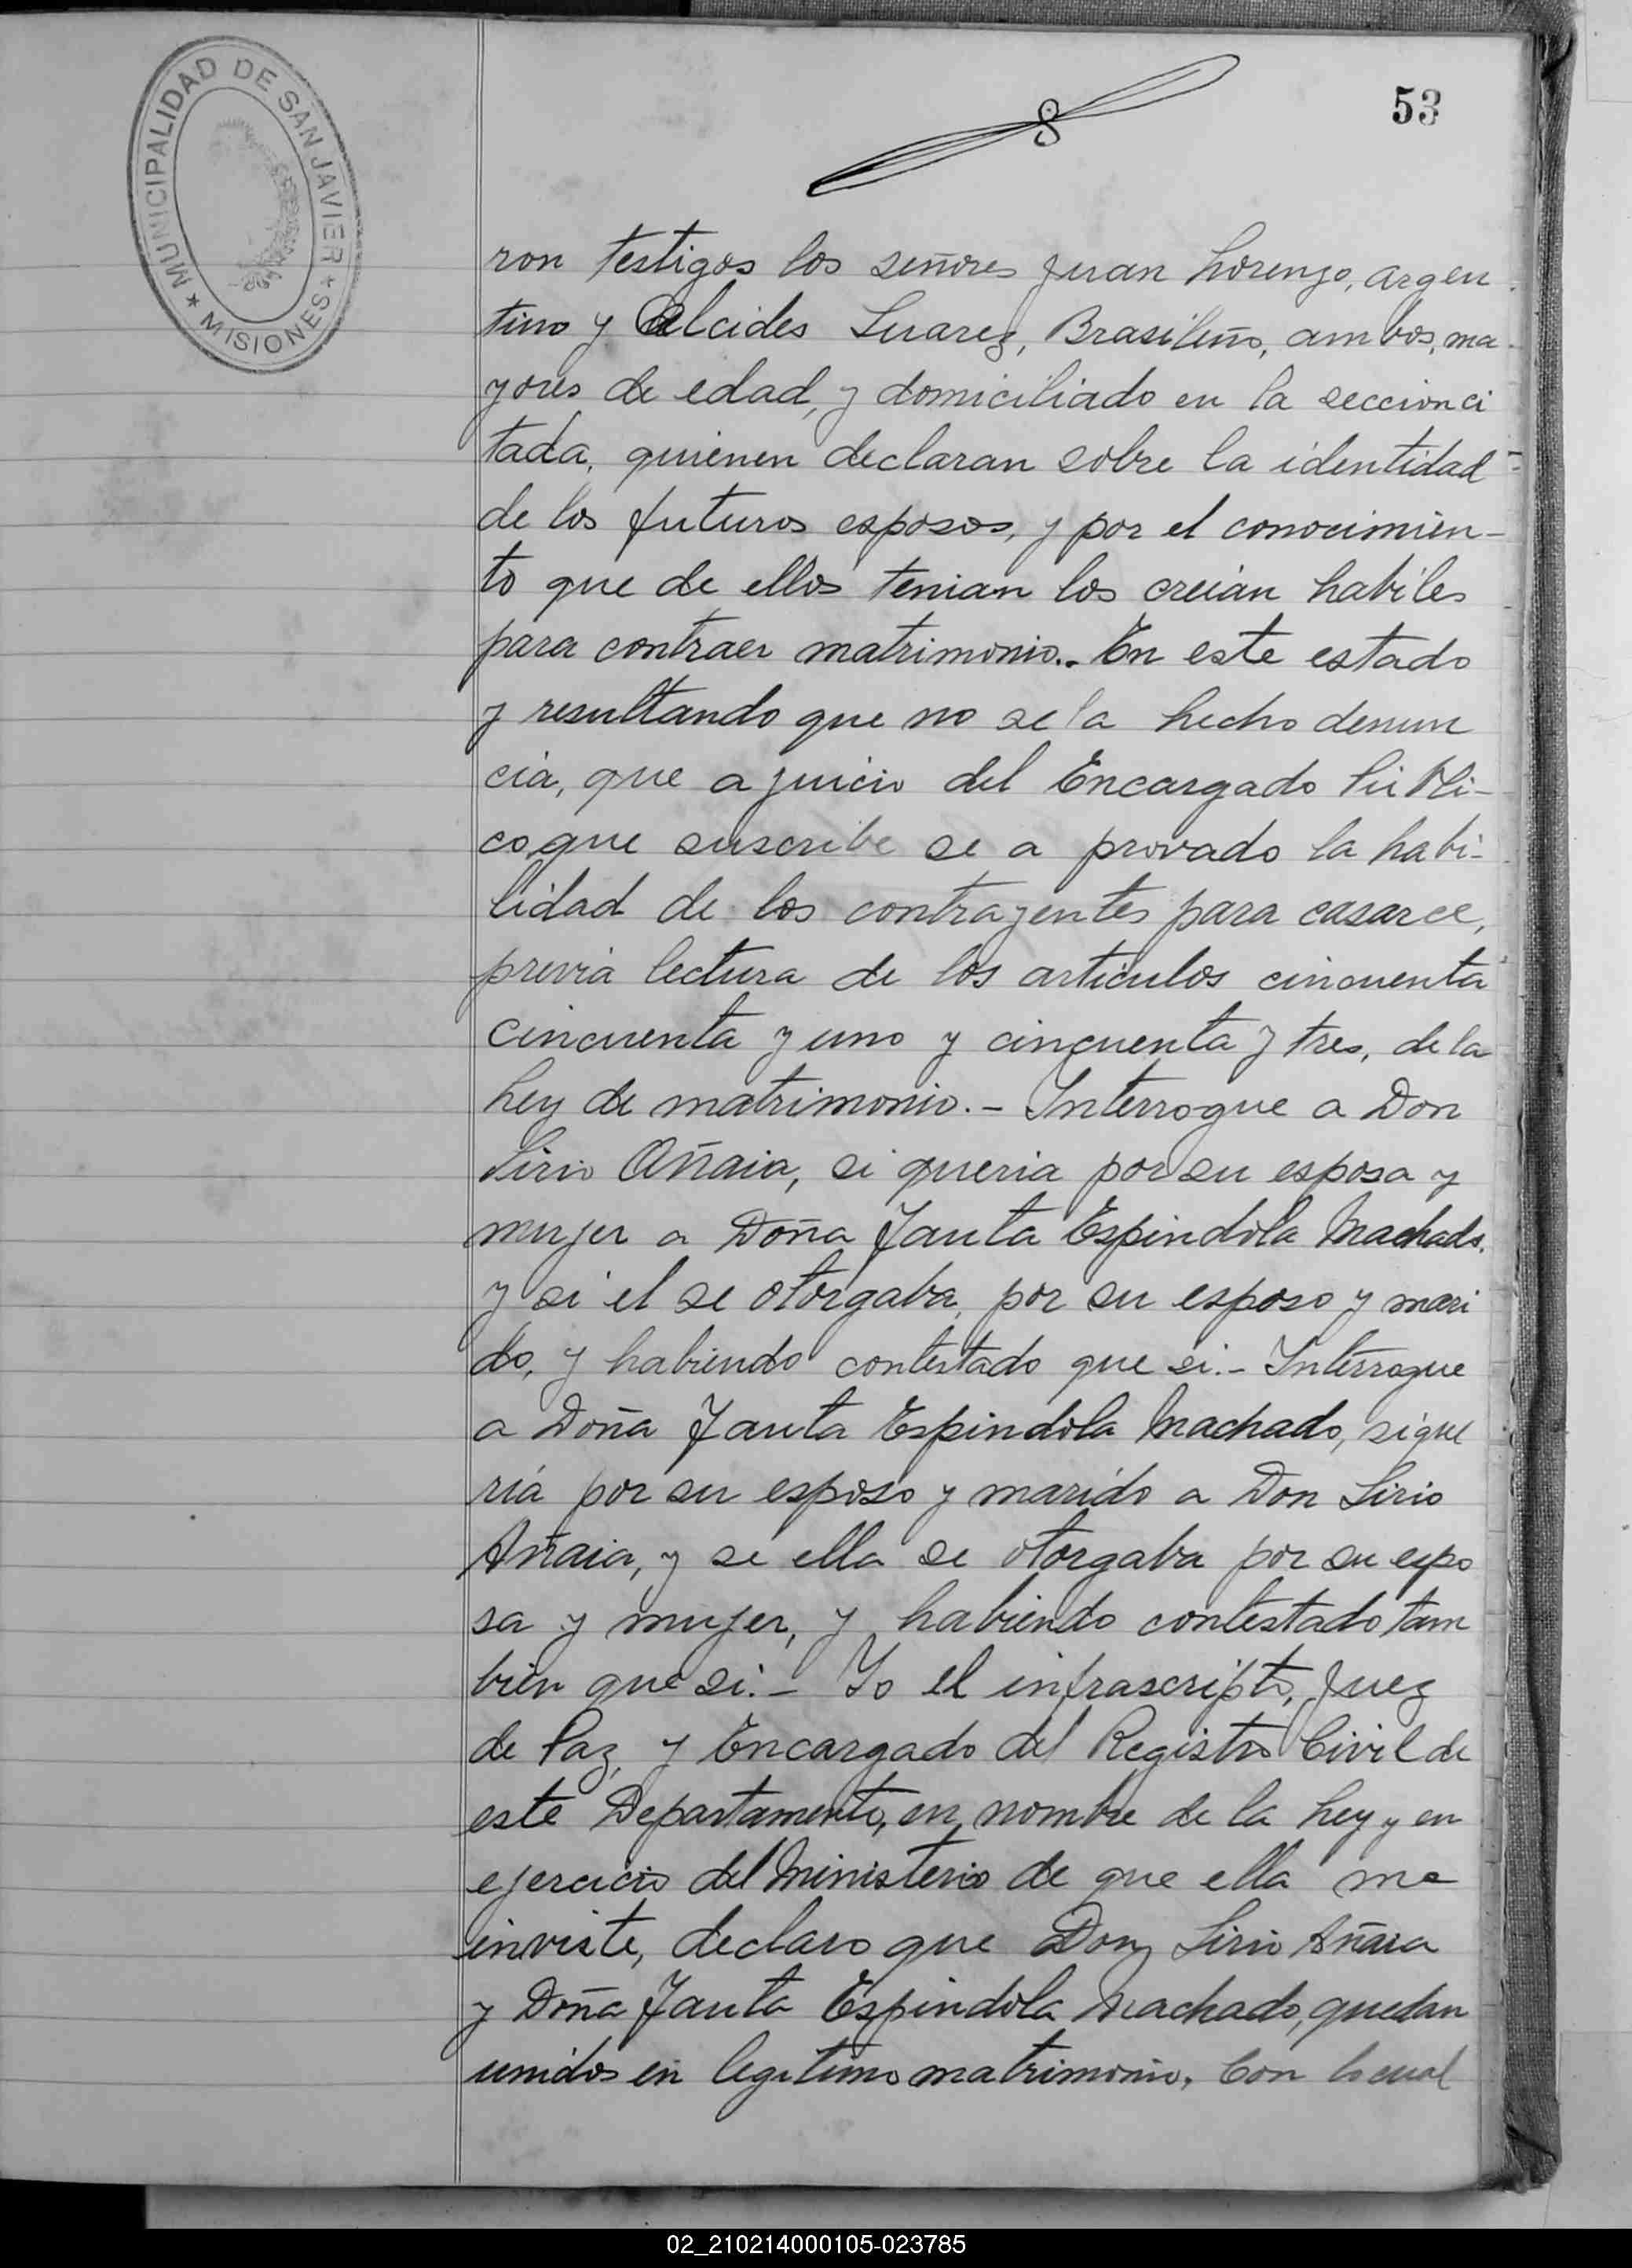 MUNICIPALIDAD DE SAN JAVIER
* MISIONES *
53
ron testigos los señores Juan Lorenzo, argen
tino y Alcides Suarez, Brasileño, ambos, ma
yores de edad, y domiciliado en la seccion ci
tada, quienen declaran sobre la identidad
de los futuros esposos, y por el conocimien-
to que de ellos tenian los creian habiles
para contraer matrimonio.- En este estado
y resultando que no se la hecho denun
cia, que a juicio del Encargado Públi-
co que suscribe se a provado la habi-
lidad de los contrayentes para casarce,
previa lectura de los articulos cincuenta
cincuenta y uno y cincuenta y tres, de la
Ley de matrimonio.- Interrogue a Don
Sirio Añaia, si queria por su esposa y
mujer a Doña Janta Espindola Machado,
y si el se otorgaba, por su esposo y mari
do, y habiendo contestado que si.- Interrogue
a Doña Janta Espindola Machado, si que
ria por su esposo y marido a Don Sirio
Añaia, y se ella se otorgaba por su espo
sa y mujer, y habiendo contestado tam
bien que si.- Yo el infrascripto, Juez
de Paz, y Encargado del Registro Civil de
este Departamento, en nombre de la Ley y en
ejercicio del Ministerio de que ella me
inviste, declaro que Don Sirio Añaia
y Doña Janta Espindola Machado, quedan
unidos en legitimo matrimonio, Con lo cual
02_210214000105-023785